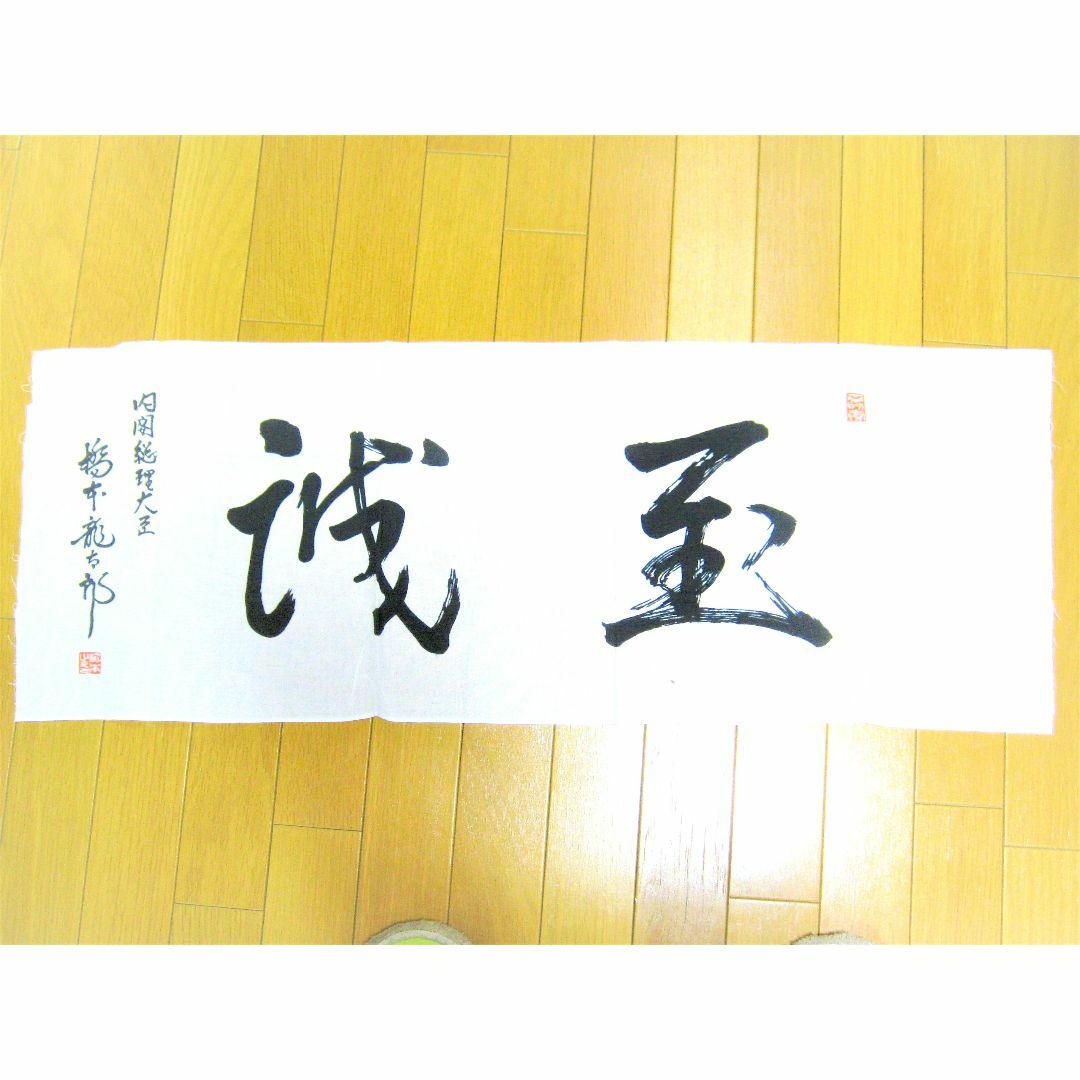 至誠
内閣総理大臣
橋本龍太郎